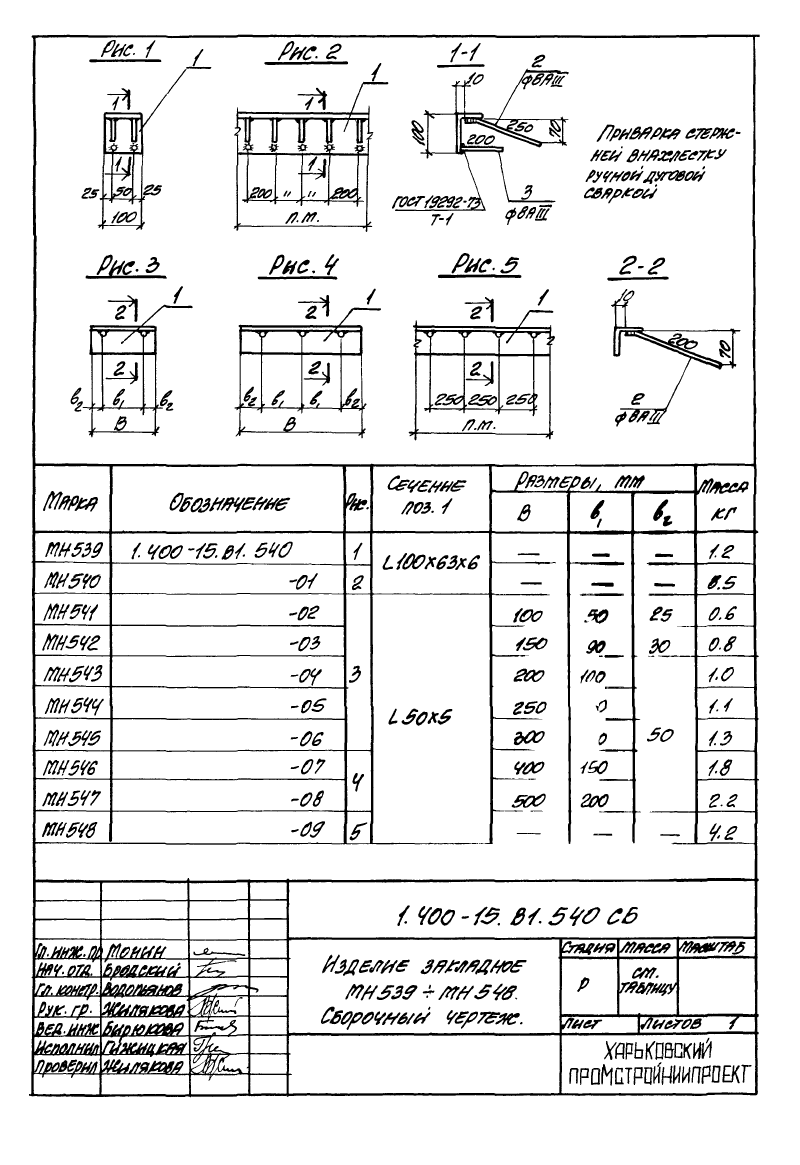 Рис. 1
Рис. 2
1-1
1
1
1
1
25 50 25
100
1
1
200 " " 200
п.м.
10
2
ф8АIII
100
250
70
200
ГОСТ 19292-73
Т-1
3
ф8АIII
Приварка стерж-
ней внахлестку
ручной дуговой
сваркой
Рис. 3
Рис. 4
Рис. 5
2-2
1
2
2
в2 в1 в2
В
1
2
2
в2 в1 в1 в2
В
1
2
2
250 250 250
п.м.
10
200
70
2
ф8АIII
Марка Обозначение Рис. Сечение поз. 1 Размеры, мм Масса кг
В в1 в2
МН539 1.400-15.В1.540 1 L100х63х6 — — — 1.2
МН540 -01 2 — — — 8.5
МН541 -02 100 50 25 0.6
МН542 -03 150 90 30 0.8
МН543 -04 3 200 100 1.0
МН544 -05 L50х5 250 1.1
МН545 -06 300 50 1.3
МН546 -07 4 400 150 1.8
МН547 -08 500 200 2.2
МН548 -09 5 — — — 4.2
1.400-15.В1.540 СБ
Гл. инж. пр Монин
Нач. отд. Бродский
Гл. констр. Водопьянов
Рук. гр. Жилякова
Вед. инж. Бирюкова
Исполнил Гижицкая
Проверил Жилякова
Изделие закладное
МН539 ÷ МН548.
Сборочный чертеж.
Стадия Масса Масштаб
Р см. таблицу
Лист Листов 1
Харьковский
ПромстройНИИпроект